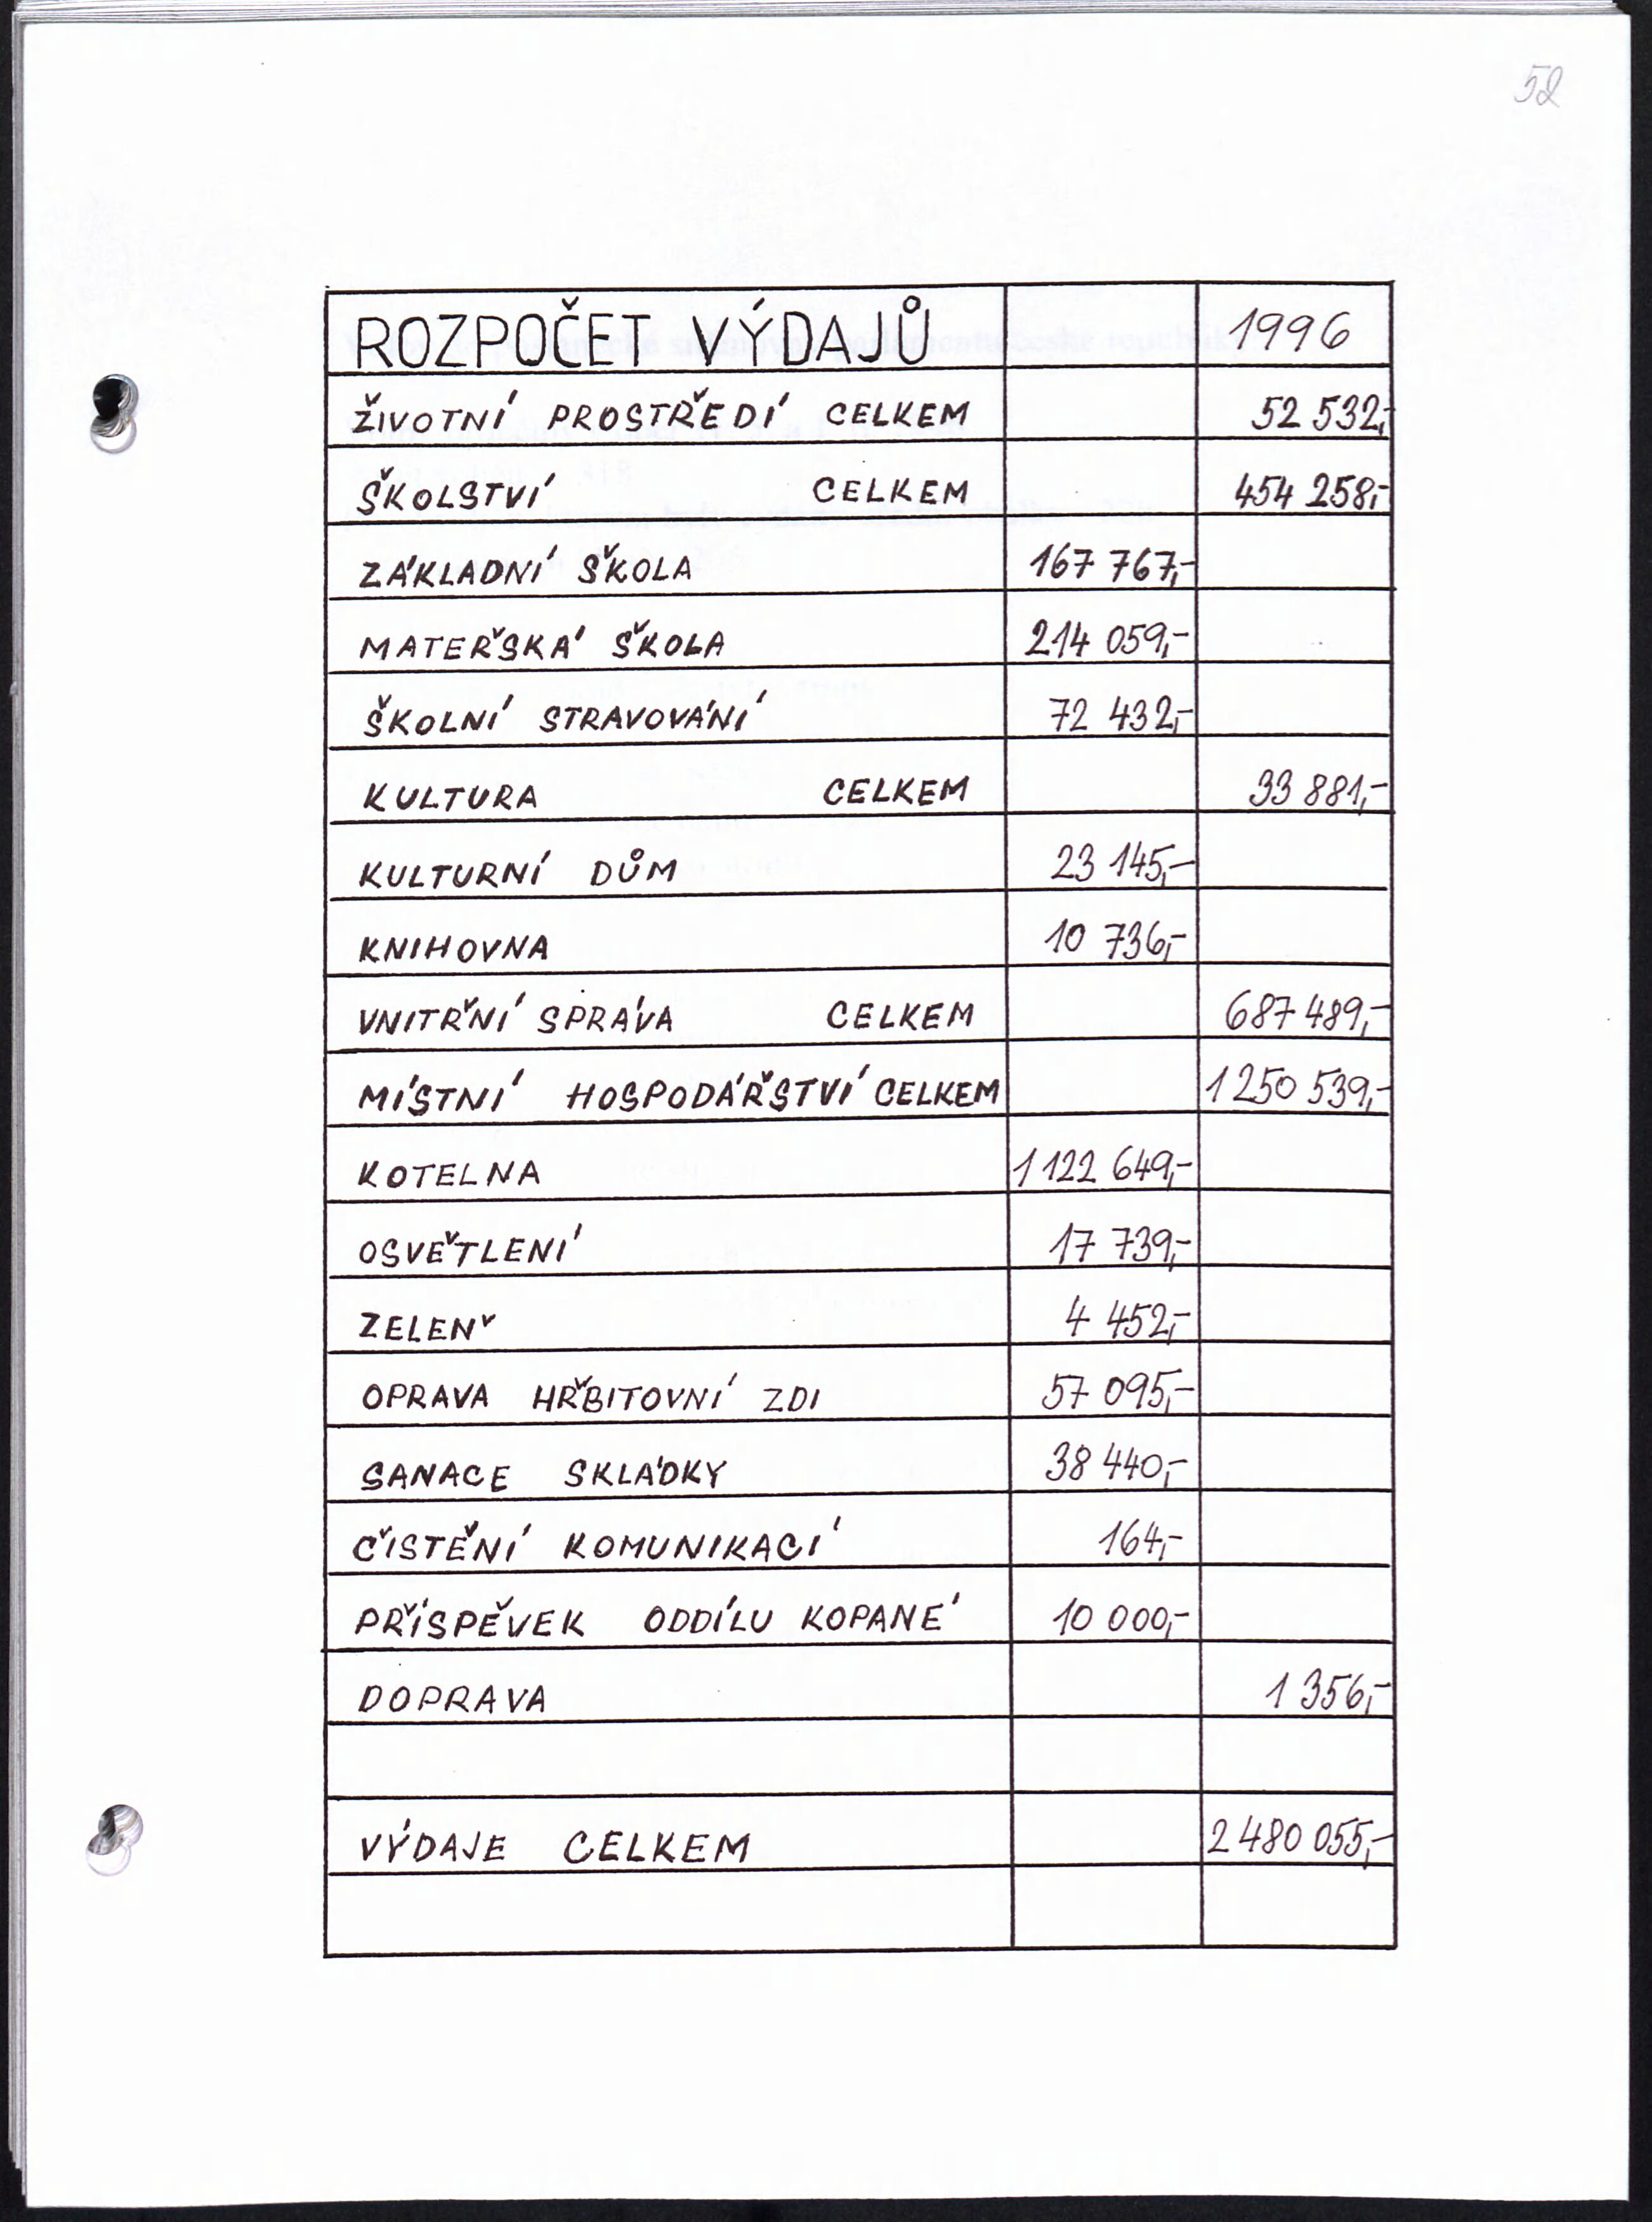 52
ROZPOČET VÝDAJŮ 1996
ŽIVOTNÍ PROSTŘEDÍ CELKEM 52 532,-
ŠKOLSTVÍ CELKEM 454 258,-
ZÁKLADNÍ ŠKOLA 167 767,-
MATEŘSKÁ ŠKOLA 214 059,-
ŠKOLNÍ STRAVOVÁNÍ 72 432,-
KULTURA CELKEM 33 881,-
KULTURNÍ DŮM 23 145,-
KNIHOVNA 10 736,-
VNITŘNÍ SPRÁVA CELKEM 687 489,-
MÍSTNÍ HOSPODÁŘSTVÍ CELKEM 1 250 539,-
KOTELNA 1 122 649,-
OSVĚTLENÍ 17 739,-
ZELEŇ 4 452,-
OPRAVA HŘBITOVNÍ ZDI 57 095,-
SANACE SKLÁDKY 38 440,-
ČISTĚNÍ KOMUNIKACÍ 164,-
PŘÍSPĚVEK ODDÍLU KOPANÉ 10 000,-
DOPRAVA 1 356,-
VÝDAJE CELKEM 2 480 055,-